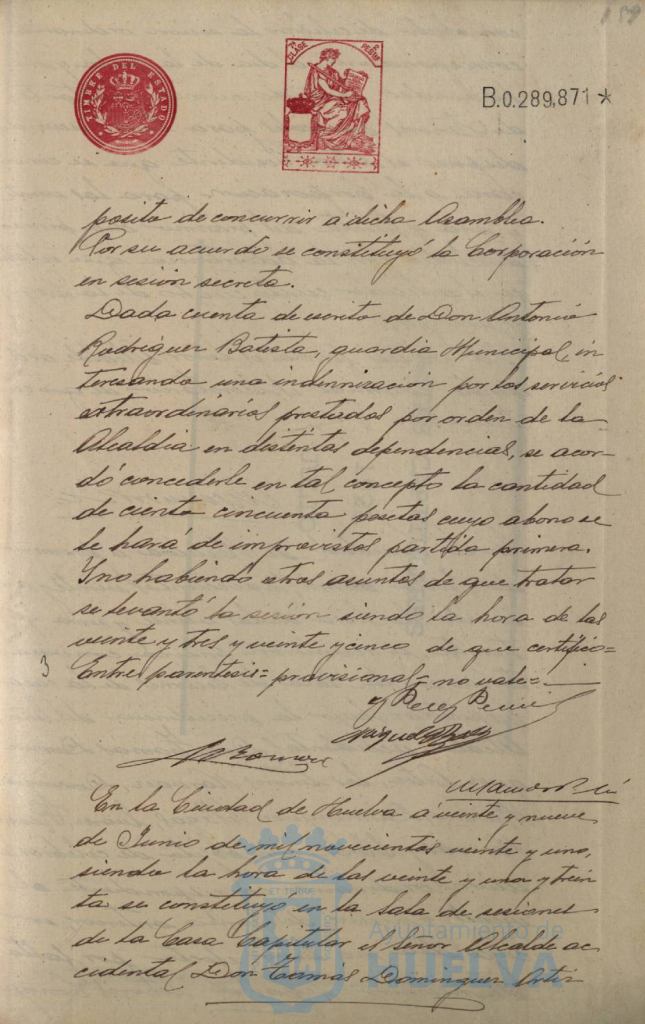 139
TIMBRE DEL ESTADO
7ª CLASE
PESETAS
B.0.289,871 *
posito de concurrir á dicha Asamblea.
Por su acuerdo se constituyó la Corporación
en sesión secreta.
Dada cuenta de escrito de Don Antonio
Rodriguez Batista, guardia Municipal, in
teresando una indemnización por los servicios
extraordinarios prestados por orden de la
Alcaldia en distintas dependencias, se acor
dó concederle en tal concepto la cantidad
de ciento cincuenta pesetas cuyo abono se
le hará de imprevistos partida primera.
Y no habiendo otros asuntos de que tratar
se levantó la sesión siendo la hora de las
veinte y tres y veinte y cinco de que certifico=
3
Entre parentesis= provisional= no vale=
En la Ciudad de Huelva á veinte y nueve
de Junio de mil novecientos veinte y uno,
siendo la hora de las veinte y una y trein
ta se constituyó en la Sala de sesiones
de la Casa Capitular el Señor Alcalde ac
cidental Don Tomás Dominguez Ortiz
Ayuntamiento de
HUELVA